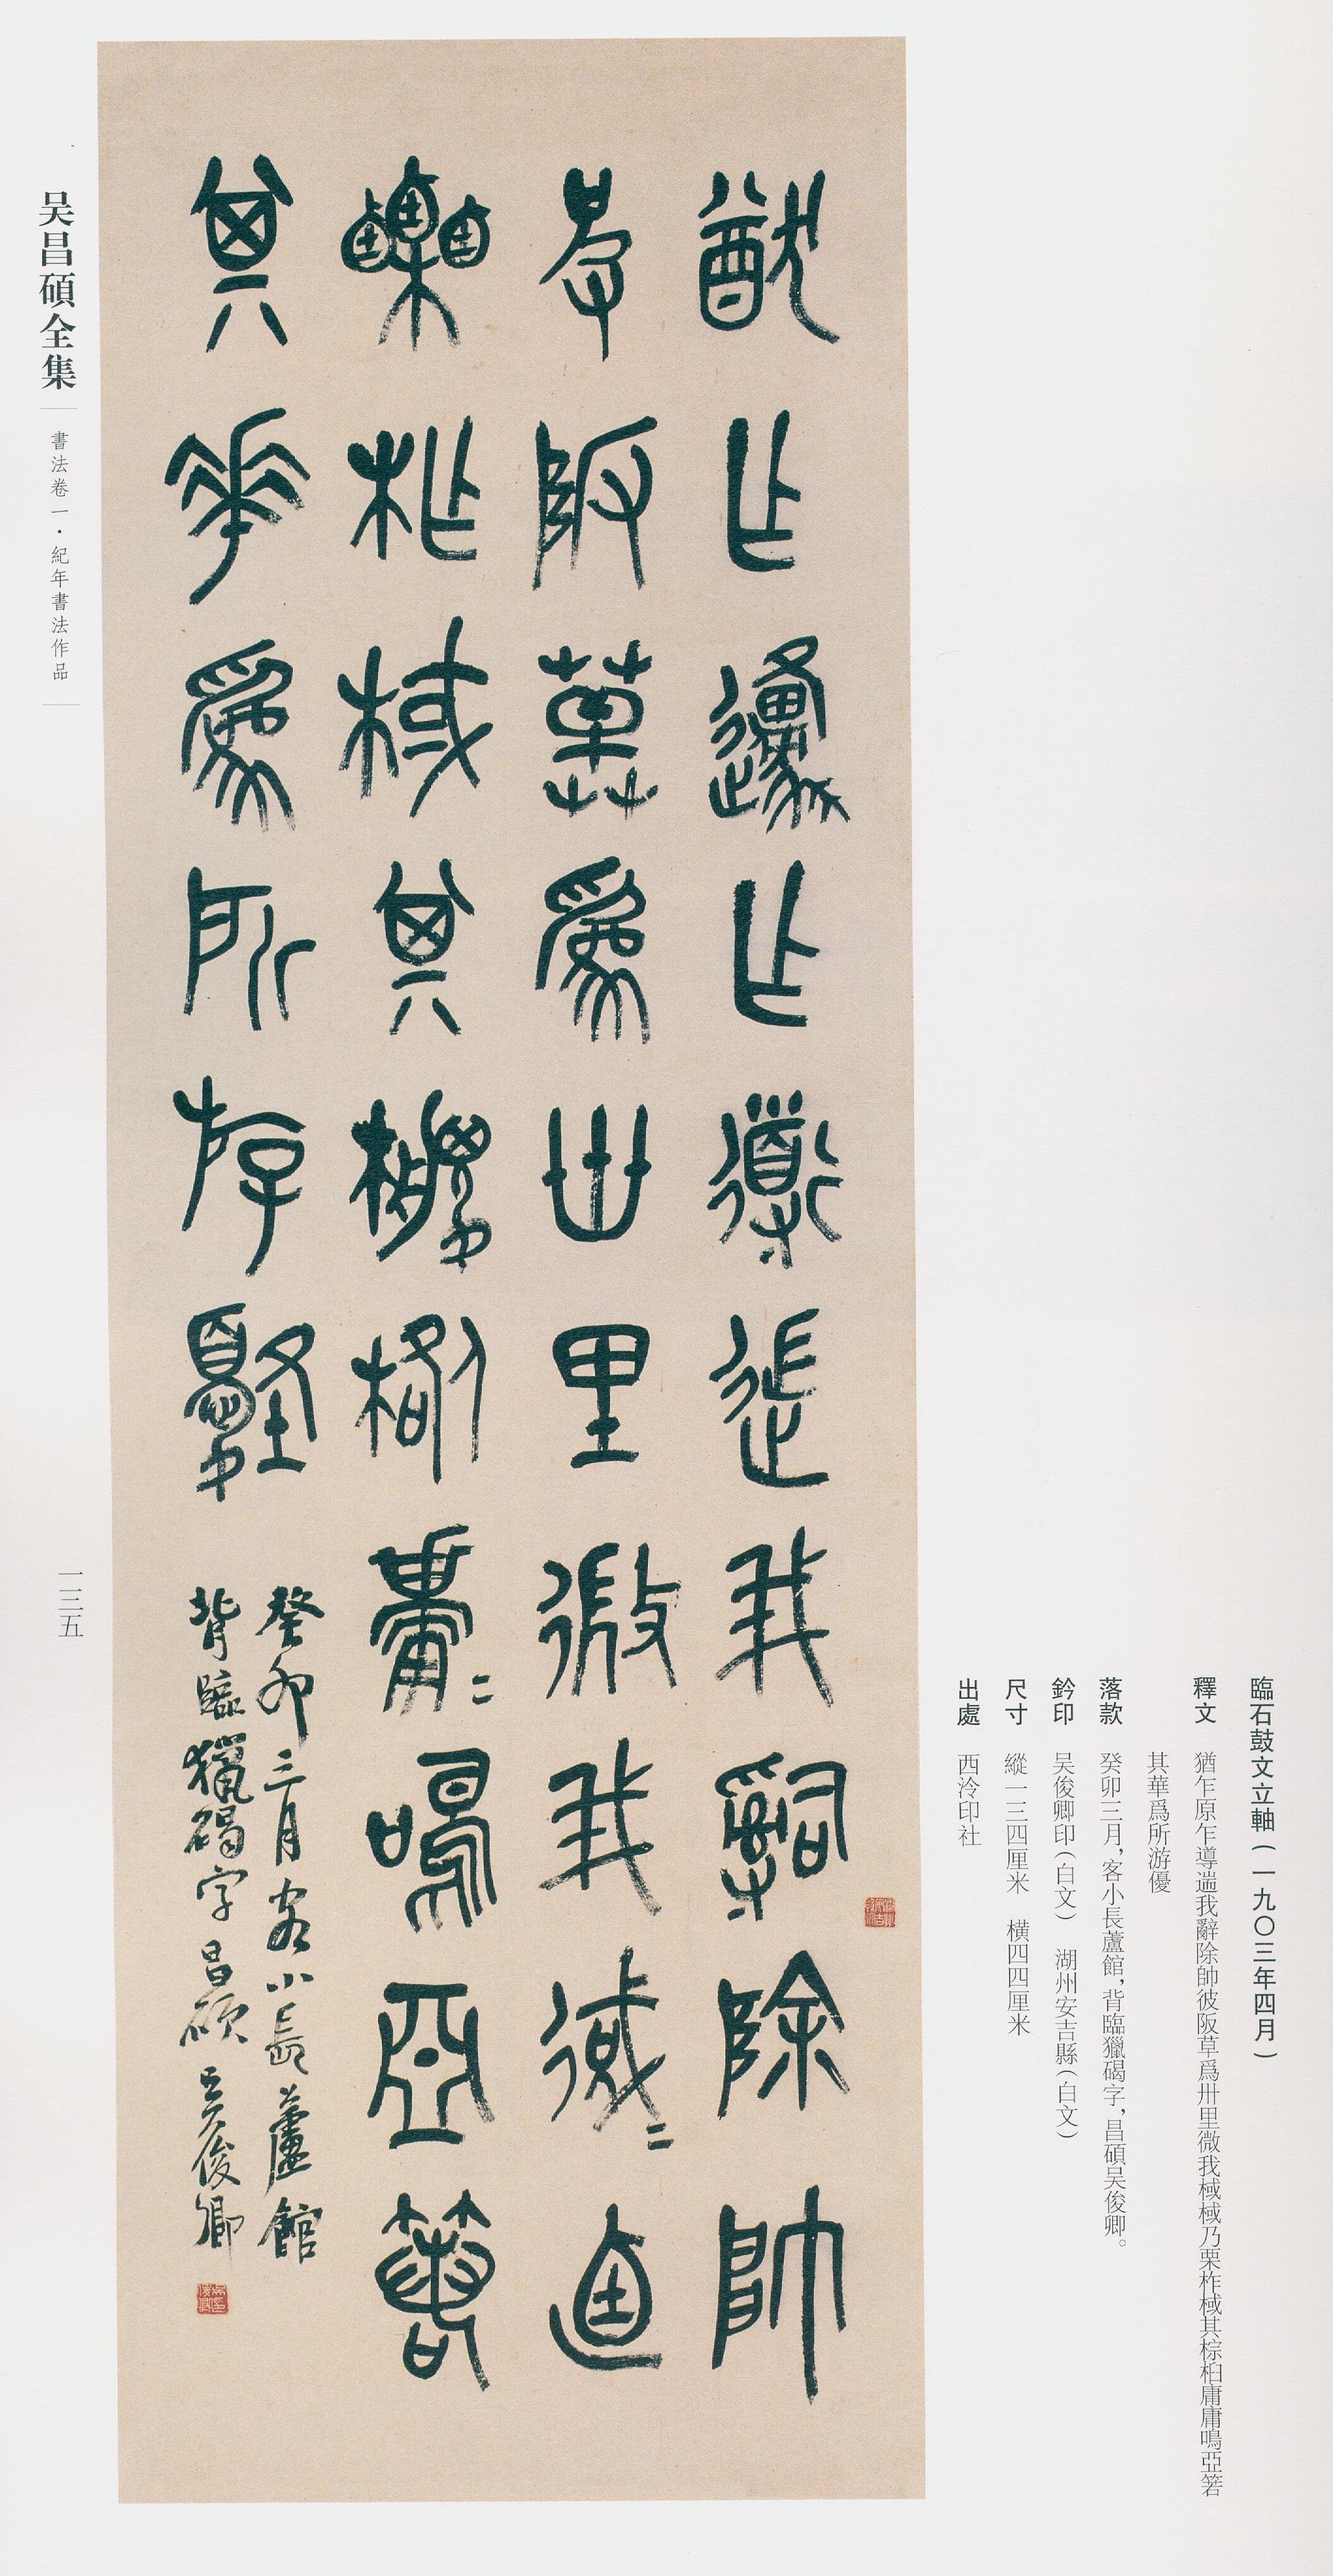 臨石鼓文立軸(一九〇三年四月)
釋文 猶乍原乍導遄我辭除帥彼阪草爲卅里微我棫棫乃栗柞棫其棕桕庸庸鳴亞箬
其華爲所游優
落款 癸卯三月,客小長蘆館,背臨獵碣字,昌碩吴俊卿。
鈐印 吴俊卿印(白文) 湖州安吉縣(白文)
尺寸 縱一三四厘米 橫四四厘米
出處 西泠印社
猷乍邍乍導遄我辭除帥
阪草爲卅里微我
栗柞棫其椶鳴亞箬
其華爲所斿
癸卯三月客小長蘆館
背臨獵碣字昌碩吴俊卿
吴昌碩全集
書法卷一·紀年書法作品
一三五